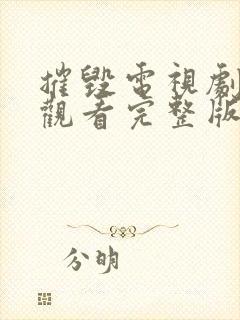 摧毀電視劇
觀看完整版
分明